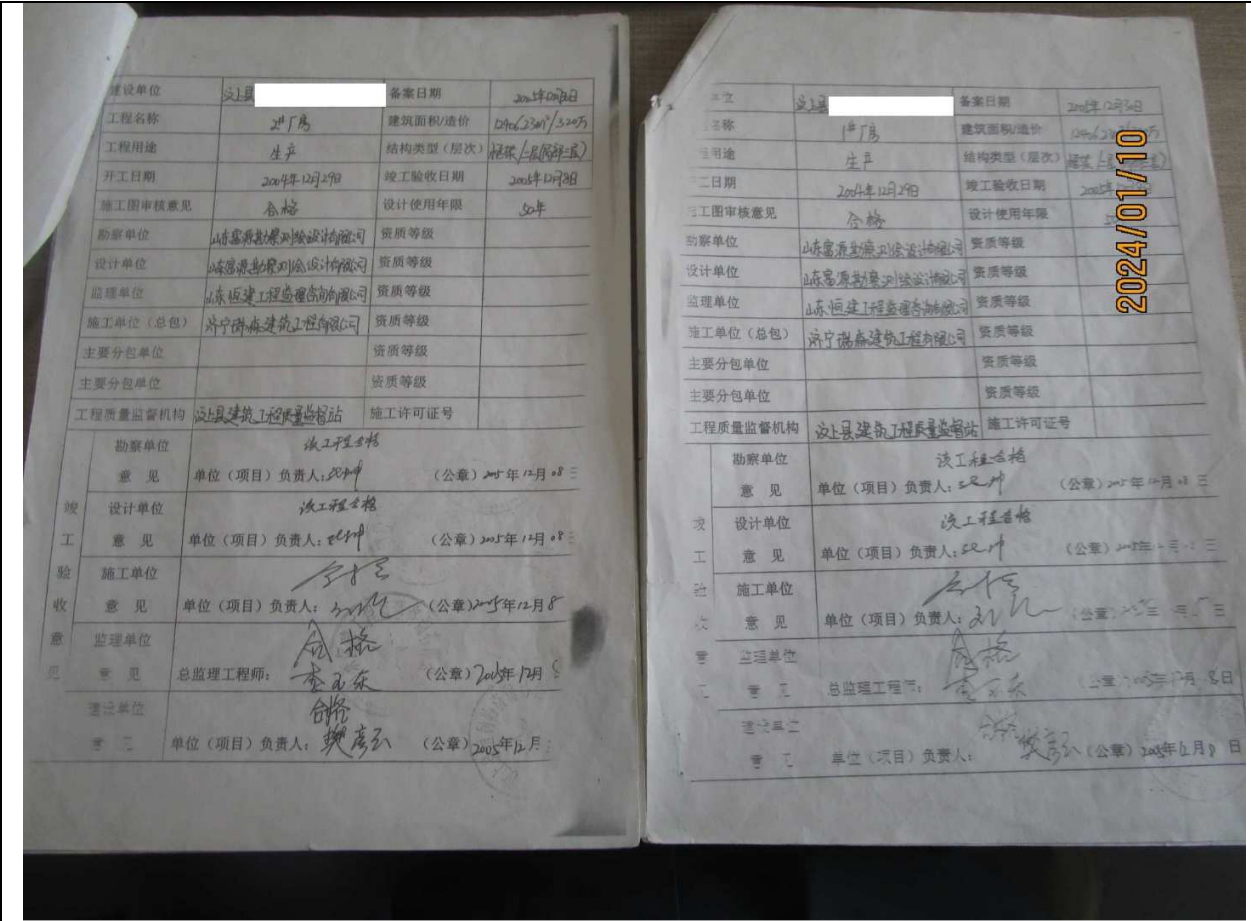 建设单位 汶上县 备案日期 2005年12月30日
工程名称 2#厂房 建筑面积/造价 12406.23m²/320万
工程用途 生产 结构类型（层次） 框架/二层(局部三层)
开工日期 2004年12月29日 竣工验收日期 2005年12月8日
施工图审核意见 合格 设计使用年限 50年
勘察单位 山东富源勘察测绘设计有限公司 资质等级
设计单位 山东富源勘察测绘设计有限公司 资质等级
监理单位 山东恒建工程监理咨询有限公司 资质等级
施工单位（总包） 济宁瑞森建筑工程有限公司 资质等级
主要分包单位 资质等级
主要分包单位 资质等级
工程质量监督机构 汶上县建筑工程质量监督站 施工许可证号
竣工验收意见
勘察单位 该工程合格
意见 单位（项目）负责人： （公章）2005年12月08
设计单位 该工程合格
意见 单位（项目）负责人： （公章）2005年12月08
施工单位 合格
意见 单位（项目）负责人： （公章）2005年12月8
监理单位 合格
意见 总监理工程师： （公章）2005年12月
建设单位 合格
单位（项目）负责人：樊彦云 （公章）2005年12月
汶上县 备案日期 2005年12月30日
名称 1#厂房 建筑面积/造价
用途 生产 结构类型（层次）
日期 2004年12月29日 竣工验收日期
工图审核意见 合格 设计使用年限
勘察单位 山东富源勘察测绘设计有限公司 资质等级
设计单位 山东富源勘察测绘设计有限公司 资质等级
监理单位 山东恒建工程监理咨询有限公司 资质等级
施工单位（总包） 济宁瑞森建筑工程有限公司 资质等级
主要分包单位 资质等级
主要分包单位 资质等级
工程质量监督机构 汶上县建筑工程质量监督站 施工许可证号
勘察单位 该工程合格
意见 单位（项目）负责人： （公章）2005年12月08
设计单位 该工程合格
意见 单位（项目）负责人： （公章）2005年
施工单位 合格
意见 单位（项目）负责人： （公章）
监理单位 合格
总监理工程师： 2005年12月8日
建设单位 合格
单位（项目）负责人： 樊彦云 （公章）2005年12月8日
2024/01/10